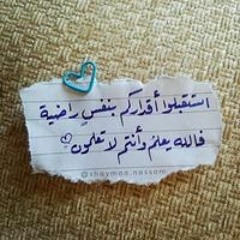 استقبلوا أقداركم بنفسٍ راضية
فالله يعلم وأنتم لا تعلمون
@shaymaa.hassona